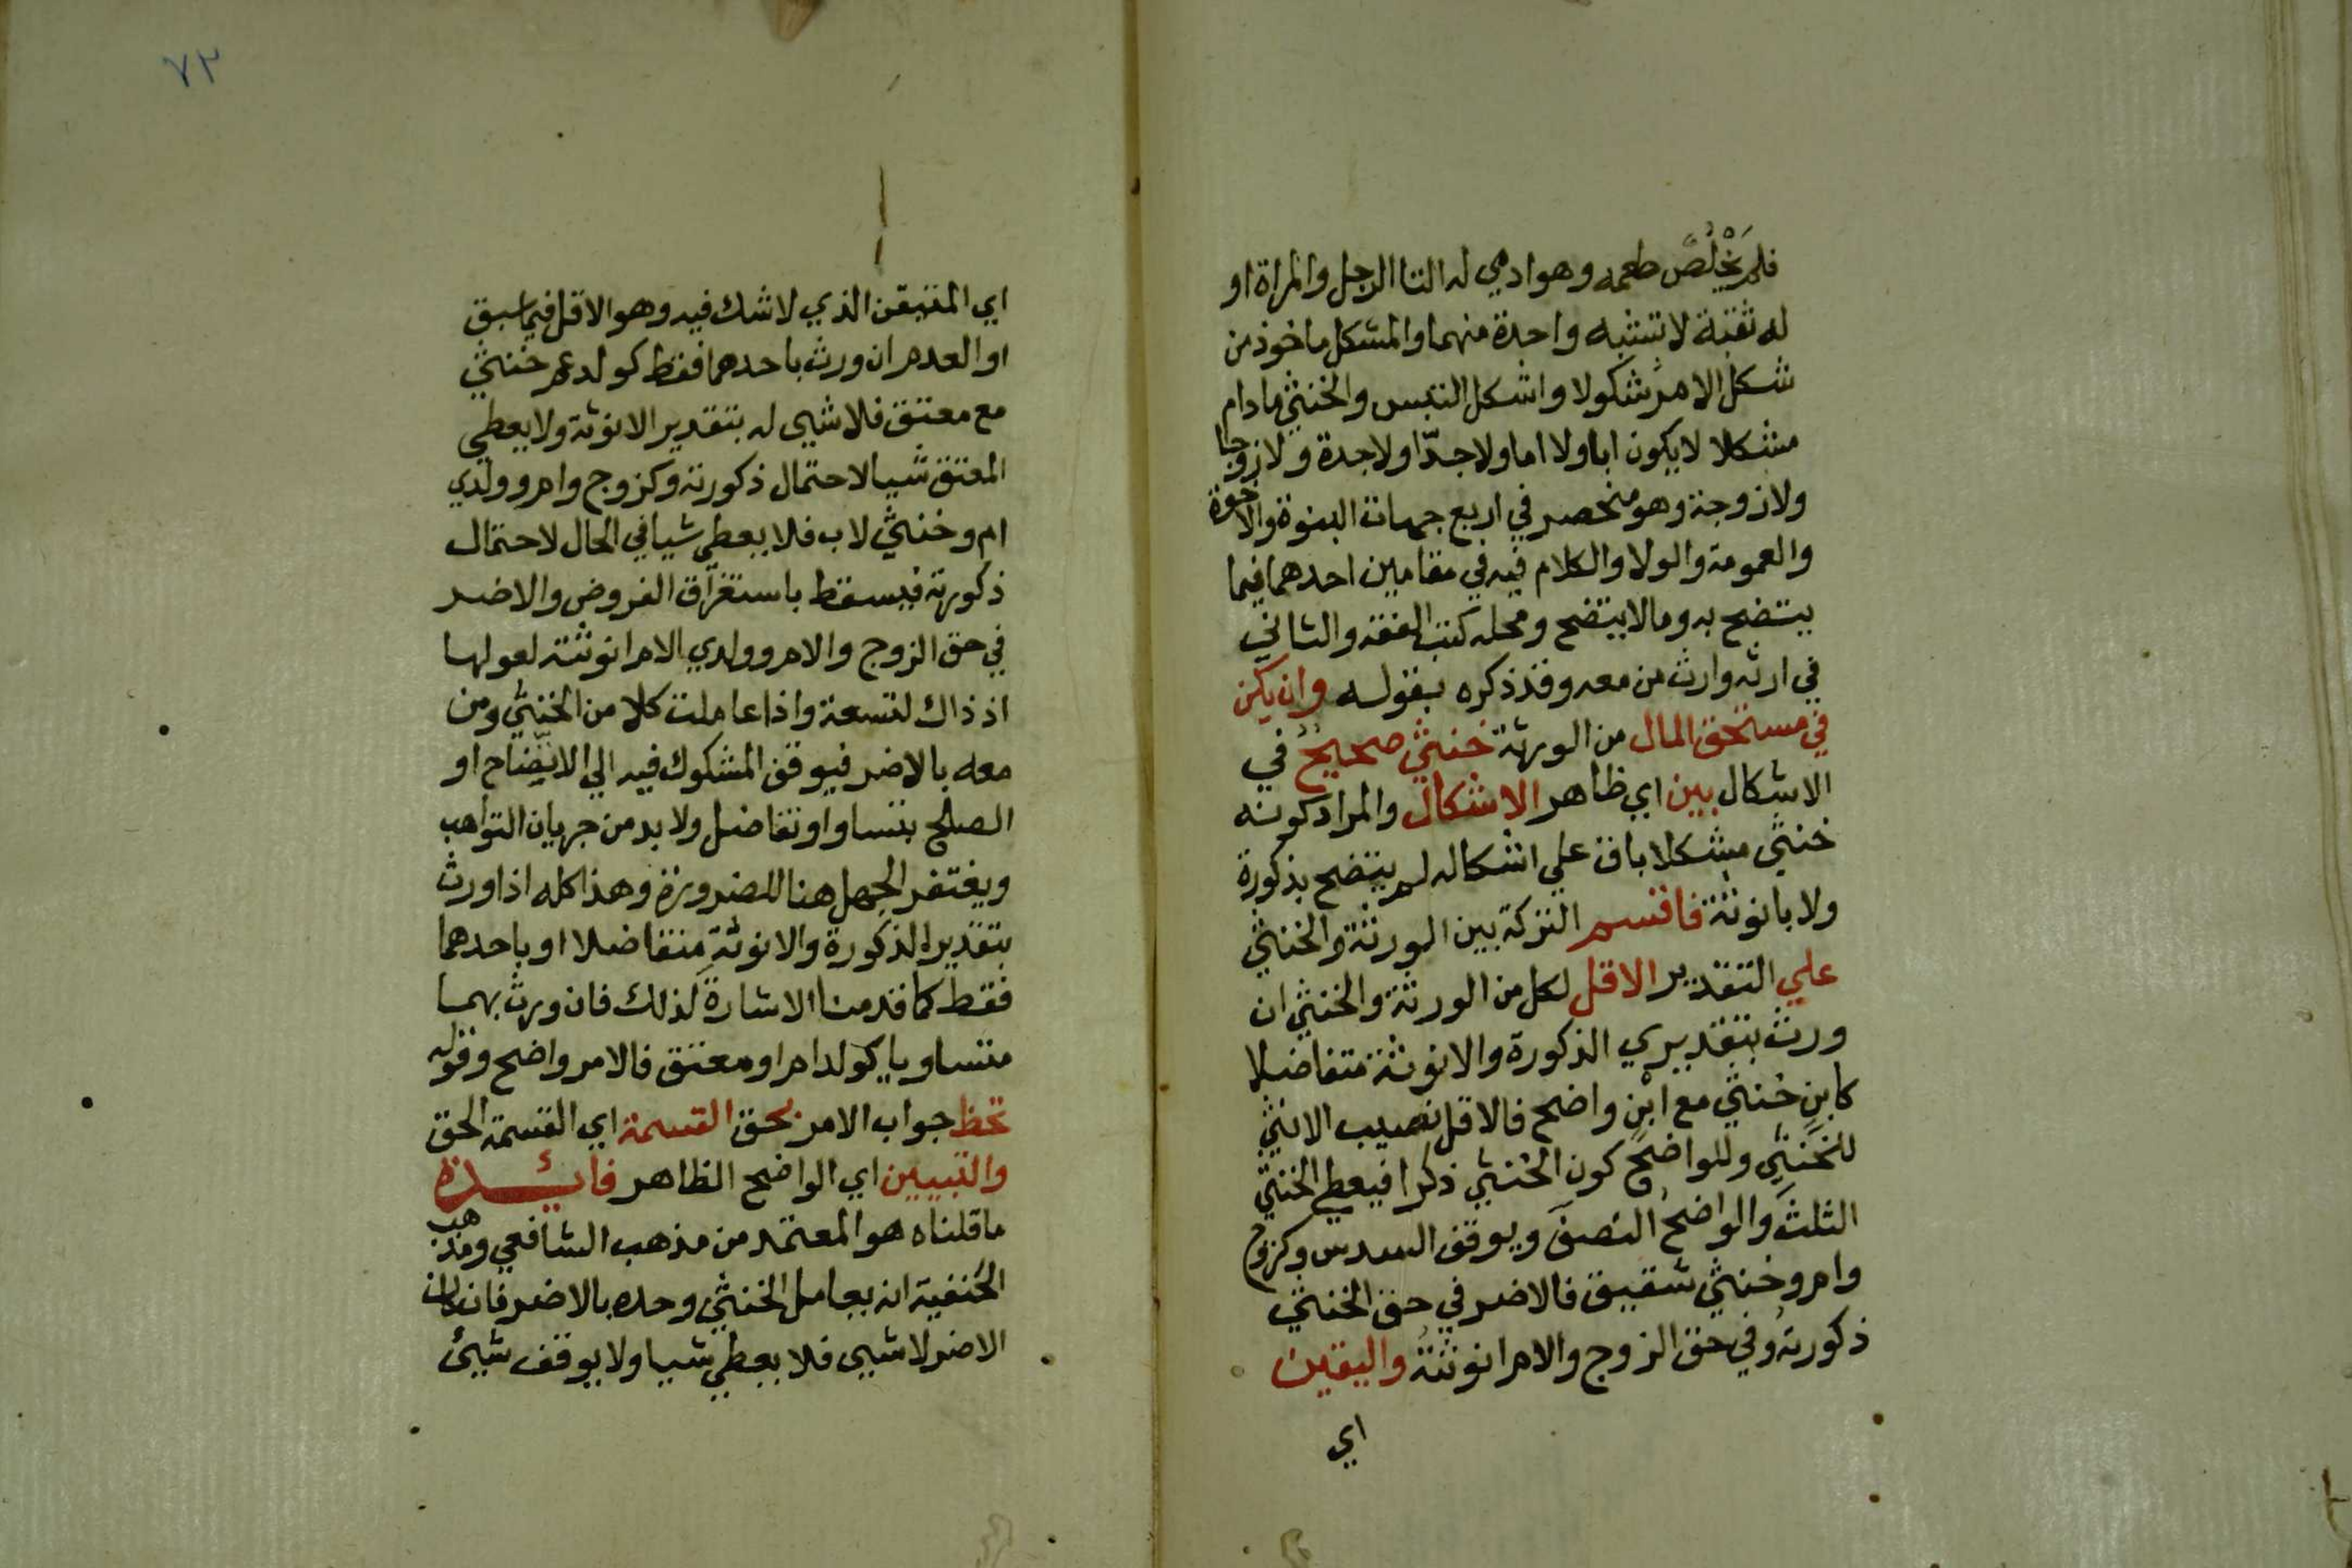 فلم يَخْلُصْ طعمه وهو ادمي له التا الرجل والمراة او
له ثقبة لا تشبه واحدة منهما والمشكل ماخوذ من
شكل الامر شكولا واشكل التبس والخنثي ما دام
مشكلا لا يكون ابا ولا اما ولا جدّا ولا جدة ولا زوجا
ولا زوجة وهو منحصر في اربع جهات البنوة والاخوة
والعمومة والولا والكلام فيه في مقامين احدهما فيما
يتضح به وما لا يتضح ومحله كتب الفقه والثاني
في ارثه وارث من معه وقد ذكره بقوله وان يكن
في مستحق المال من الورثة خنثي صحيحُ في
الاشكال بين اي ظاهر الاشكال والمراد كونه
خنثي مشكلا باق علي اشكاله لم يتضح بذكورة
ولا بانوثة فاقسم التركة بين الورثة والخنثي
علي التقدير الاقل لكل من الورثة والخنثي ان
ورث بتقديري الذكورة والانوثة متفاضلا
كابنِ خنثي مع ابنٍ واضح فالاقل نصيب الانثي
للخنثي وللواضح كون الخنثي ذكرا فيعطي الخنثي
الثلثَ والواضحُ النصفَ ويوقف السدس وكزوج
وام وخنثي شقيق فالاضر في حق الخنثي
ذكورتهُ وفي حق الزوج والام انوثتهُ واليقين
اي
٧٢
اي المتيقن الذي لا شك فيه وهو الاقل فيما سبق
او العدم ان ورث باحدهما فقط كولد عم خنثي
مع معتق فلا شيي له بتقدير الانوثة ولا يعطي
المعتق شيا لاحتمال ذكورته وكزوج وام وولدي
ام وخنثي لاب فلا يعطي شيا في الحال لاحتمال
ذكورته فيسقط باستغراق الفروض والاضر
في حق الزوج والام وولدي الام انوثته لعولها
اذ ذاك لتسعة واذا عاملت كلا من الخنثي ومن
معه بالاضر فيوقف المشكوك فيه الي الاتّضاح او
الصلح بتساو او تفاضل ولا بد من جريان التواهب
ويغتفر الجهل هنا للضرورة وهذا كله اذا ورث
بتقدير الذكورة والانوثة متفاضلا او باحدهما
فقط كما قدمنا الاشارة لذلك فان ورث بهما
متساويا كولد ام او معتق فالامر واضح وقوله
تحظ جواب الامر بحق القسمة اي القسمة الحق
والتبيين اي الواضح الظاهر فائدة
ما قلناه هو المعتمد من مذهب الشافعي ومذهب
الحَنفية انه يعامل الخنثي وحده بالاضر فان كان
الاضر لا شيي فلا يعطي شيا ولا يوقف شيئ